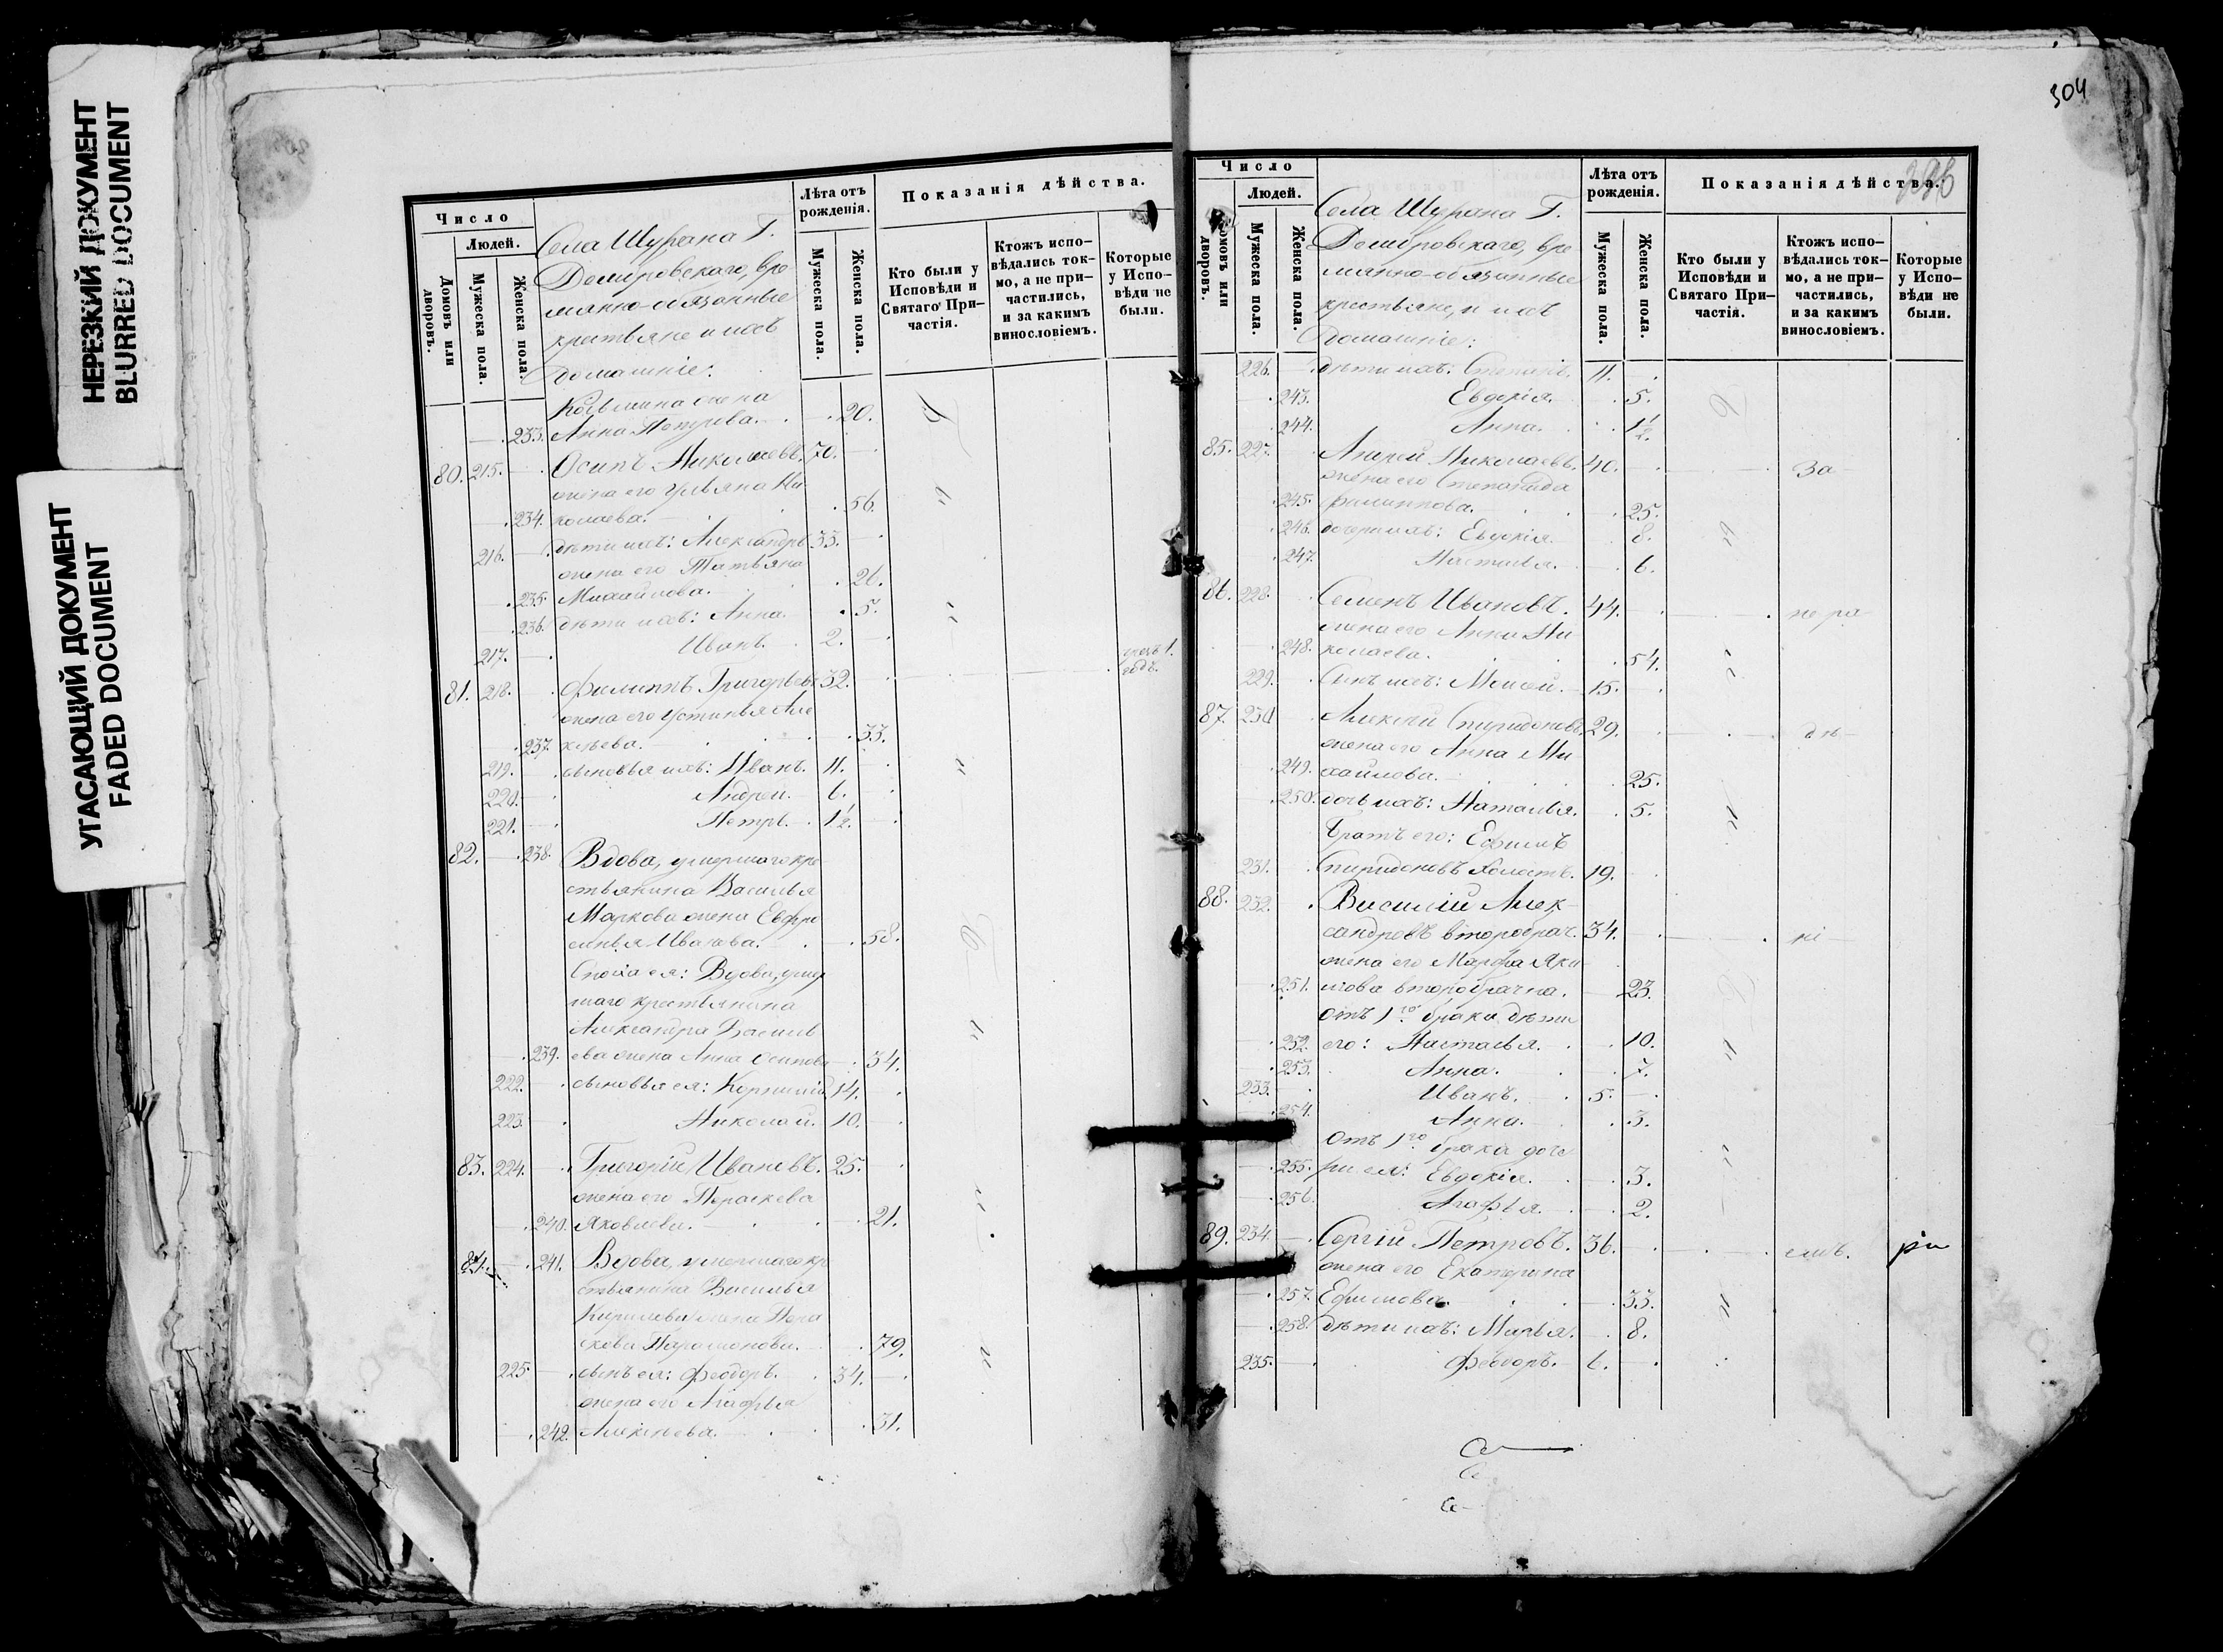 НЕРЕЗКИЙ ДОКУМЕНТ
BLURRED DOCUMENT
УГАСАЮЩИЙ ДОКУМЕНТ
FADED DOCUMENT
Число
Людей.
Домовъ или дворовъ.
Мужеска пола.
Женска пола.
Села Шурана Г.
временно-обязанные
крестьяне и ихъ
домашніе:
Лѣта отъ рожденія.
Мужеска пола.
Женска пола.
Показанія дѣйства.
Кто были у Исповѣди и Святаго Причастія.
Ктожъ исповѣдались токмо, а не причастились, и за какимъ винословіемъ.
Которые у Исповѣди не были.
жена
233. Анна Петрова. 20.
80. 215. Осипъ Николаевъ. 70.
жена его Ульяна Ни
234. колаева. 56.
216. дѣти ихъ: Александръ 33.
жена его Татьяна
235. Михайлова. 26.
236. дѣти ихъ: Анна. 5.
217. Иванъ. 2.
81. 218. Филиппъ Григорьевъ 32.
жена его Устинья Але
237. ксѣева. 33.
219. сыновья ихъ: Иванъ. 11.
220. Андрей. 6.
221. Петръ. 1½.
82. 238. Вдова, умершаго кре
стьянина Василья
Маркова жена Евфро
синья Иванова. 58.
Сноха ея: Вдова, умер
шаго крестьянина
Александра Василь
239. ева жена Анна Осипова 34.
222. сыновья ея: Корнилій 14.
223. Николай. 10.
83. 224. Григорій Ивановъ. 25.
жена его Параскева
240. Яковлева. 21.
84. 241. Вдова, умершаго кре
стьянина Василья
Кирилова жена Пара
скева Парамонова. 79.
225. сынъ ея: Феодоръ. 34.
жена его Агафья
242. Алексѣева. 31.
304
Число
Людей.
Домовъ или дворовъ.
Мужеска пола.
Женска пола.
Села Шурана Г.
временно-обязанные
крестьяне, и ихъ
домашніе:
Лѣта отъ рожденія.
Мужеска пола.
Женска пола.
Показанія дѣйства.
Кто были у Исповѣди и Святаго Причастія.
Ктожъ исповѣдались токмо, а не причастились, и за какимъ винословіемъ.
Которые у Исповѣди не были.
226. дѣти ихъ: Степанъ. 11.
243. Евдокія. 5.
244. Анна. 1½.
85. 227. Андрей Николаевъ. 40. за
жена его Степанида
245. Филиппова. 25.
246. дочери ихъ: Евдокія. 8.
247. Настасья. 6.
86. 228. Семенъ Ивановъ. 44. не ра
жена его Анна Ни
248. колаева. 54.
229. Сынъ ихъ: Моисей. 15.
87. 230. Алексѣй Спиридоновъ 29. дѣ
жена его Анна Ми
249. хайлова. 25.
250. дочь ихъ: Наталья. 5.
Братъ его: Ефимъ
231. Спиридоновъ холостъ. 19.
88. 232. Василій Алек
сандровъ второбрач. 34. ні
жена его Марфа Яки
251. мова второбрачна. 23.
Отъ 1го брака дѣти
252. его: Настасья. 10.
253. Анна. 7.
233. Иванъ. 5.
254. Анна. 3.
Отъ 1го брака доче
255. ри ея: Евдокія. 3.
256. Агафья. 2.
89. 234. Сергій Петровъ. 36. емъ.
жена его Екатерина
257. Ефимова. 33.
258. дѣти ихъ: Марья. 8.
235. Феодоръ. 6.